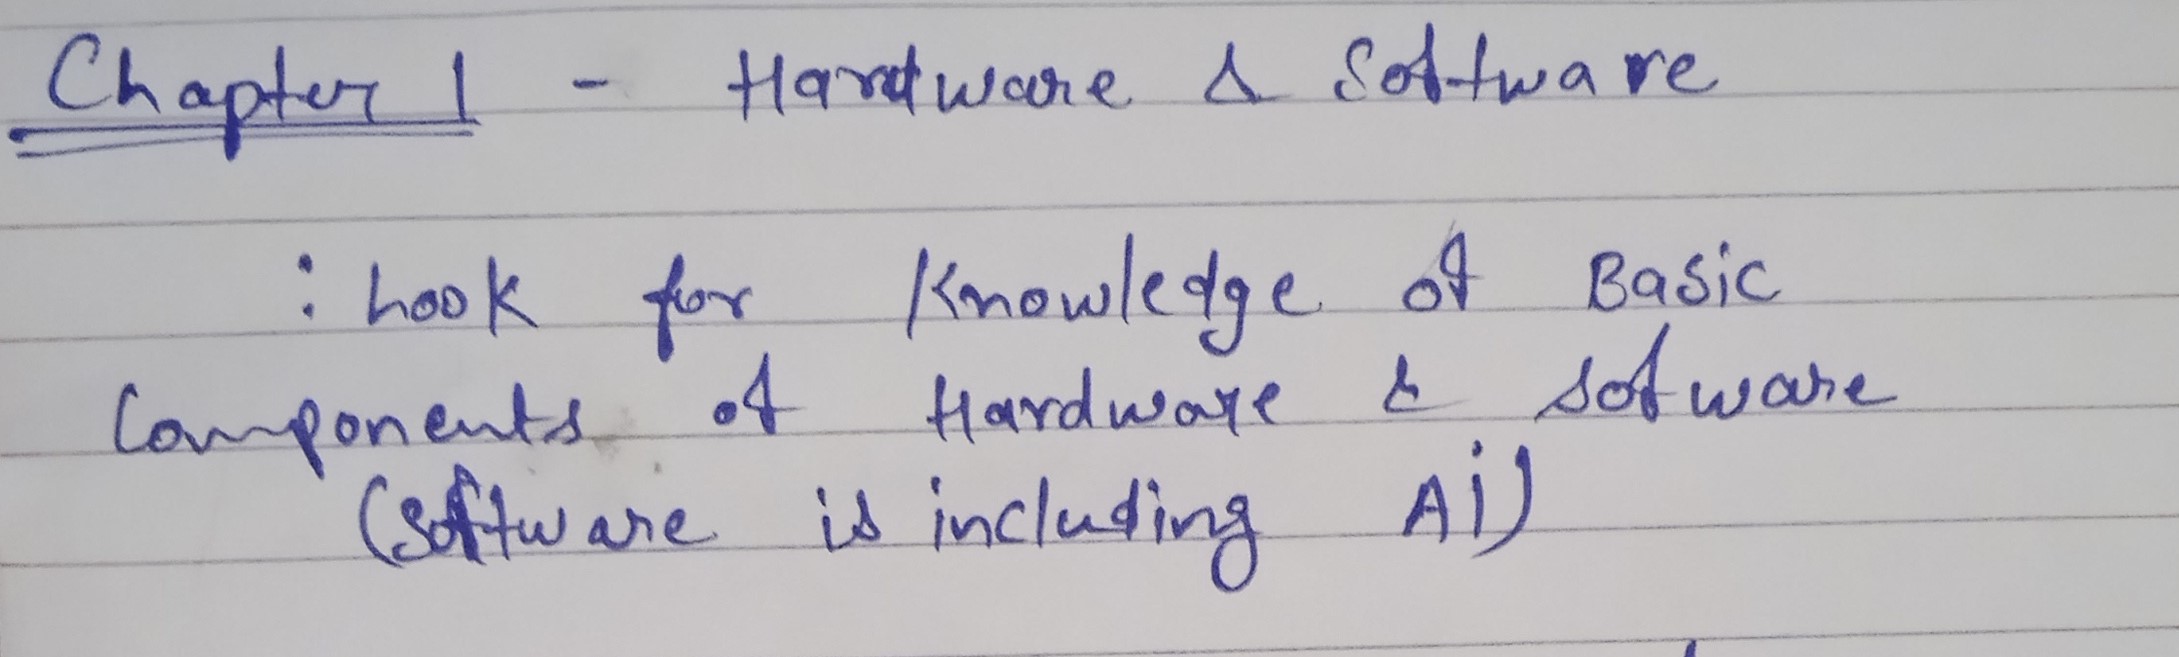 Chapter 1 - Hardware & Software
: Look for Knowledge of Basic
Components of Hardware & Sofware
(Software is including Ai)